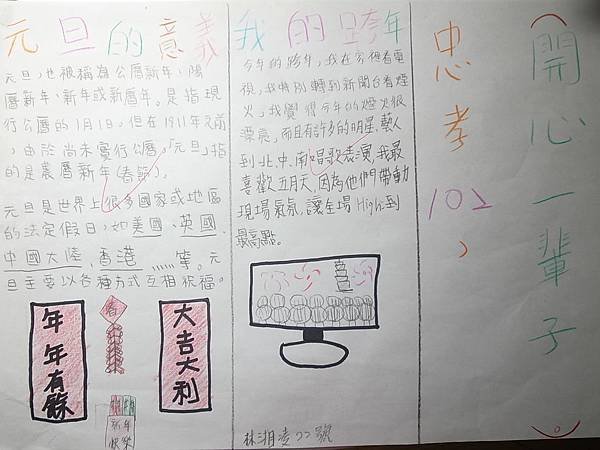 元旦的意義
元旦,也被稱為公曆新年、陽
曆新年、新年或新曆年。是指現
行公曆的1月1日,但在1911年以前
,由於尚未實行公曆,「元旦」指
的是農曆新年(春節)。
元旦是世界上很多國家或地區
的法定假日,如美國、英國、
中國大陸、香港……等。元
旦主要以各種方式互相祝福。
年年有餘
春
大吉大利
新年
快樂
我的跨年
今年的跨年,我在家裡看電
視,我特別轉到新聞台看煙
火,我覺得今年的煙火很
漂亮,而且有許多的明星、藝人
到北、中、南唱歌表演,我最
喜歡五月天,因為他們帶動
現場氣氛,讓全場High到
最高點。
林湘凌22號
忠孝102
開心一輩子